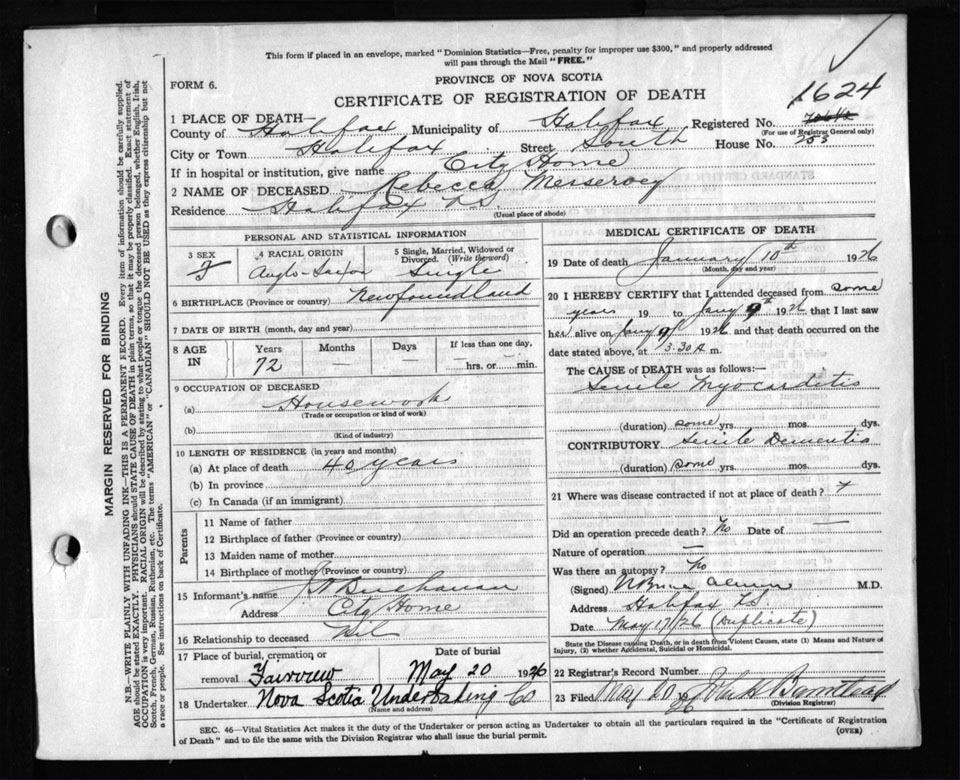 This form if placed in an envelope, marked "Dominion Statistics—Free, penalty for improper use $300," and properly addressed
will pass through the Mail "FREE."
FORM 6.
PROVINCE OF NOVA SCOTIA
CERTIFICATE OF REGISTRATION OF DEATH
1624
1 PLACE OF DEATH—
County of Halifax Municipality of Halifax Registered No.
(For use of Registrar General only)
City or Town Halifax Street South House No. 253
If in hospital or institution, give name City Home
2 NAME OF DECEASED Rebecca Messervey
Residence Halifax N.S.
(Usual place of abode)
PERSONAL AND STATISTICAL INFORMATION
3 SEX 4 RACIAL ORIGIN 5 Single, Married, Widowed or Divorced. (Write the word)
F Anglo-Saxon Single
6 BIRTHPLACE (Province or country) Newfoundland
7 DATE OF BIRTH (month, day and year)
8 AGE IN Years Months Days If less than one day,
72 — — hrs. or min.
9 OCCUPATION OF DECEASED
(a) Housework
(Trade or occupation or kind of work)
(b)
(Kind of industry)
10 LENGTH OF RESIDENCE (in years and months)
(a) At place of death 40 years
(b) In province
(c) In Canada (if an immigrant)
Parents
11 Name of father
12 Birthplace of father (Province or country)
13 Maiden name of mother
14 Birthplace of mother (Province or country)
15 Informant's name Buchanan
Address City Home
16 Relationship to deceased Nil
17 Place of burial, cremation or Date of burial
removal Fairview May 20 1926
18 Undertaker Nova Scotia Undertaking Co
(Name and address)
MEDICAL CERTIFICATE OF DEATH
19 Date of death January 10th 1926
(Month, day and year)
20 I HEREBY CERTIFY that I attended deceased from some
years 19 to Jany 9th 1926 that I last saw
her alive on Jany 9 1926 and that death occurred on
date stated above, at 3.30 A m.
The CAUSE of DEATH was as follows:—
Senile Myocarditis
(duration) some yrs. mos. dys.
CONTRIBUTORY Senile Dementia
(duration) some yrs. mos. dys.
21 Where was disease contracted if not at place of death?
Did an operation precede death? No Date of —
Nature of operation —
Was there an autopsy? No
(Signed) M.D.
Address Halifax N.S.
Date May 17/26 (Duplicate)
State the Disease causing Death, or in death from Violent Causes, state (1) Means and Nature of
Injury, (2) whether Accidental, Suicidal or Homicidal.
22 Registrar's Record Number
23 Filed May 20 1926 John H Barnstead
(Division Registrar)
SEC. 46—Vital Statistics Act makes it the duty of the Undertaker or person acting as Undertaker to obtain all the particulars required in the "Certificate of Registration
of Death" and to file the same with the Division Registrar who shall issue the burial permit.
(OVER)
MARGIN RESERVED FOR BINDING
N.B.—WRITE PLAINLY WITH UNFADING INK—THIS IS A PERMANENT RECORD. Every item of information should be carefully supplied.
AGE should be stated EXACTLY. PHYSICIANS should STATE CAUSE OF DEATH in plain terms, so that it may be properly classified. Exact statement of
OCCUPATION is very important. RACIAL ORIGIN will be described by stating to what people or tongue the deceased person belonged, whether English, Irish,
Scotch, French, German, Russian, Ruthenian, etc. The terms "AMERICAN" or "CANADIAN" SHOULD NOT BE USED as they express citizenship but not
a race or people. See instructions on back of Certificate.